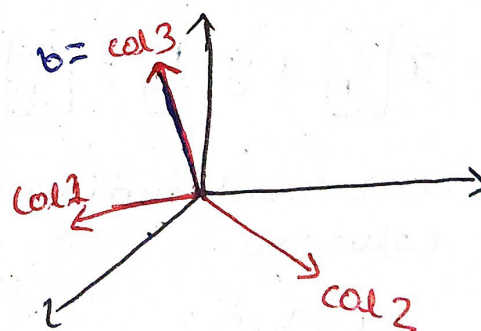 b = col3
col1
col 2